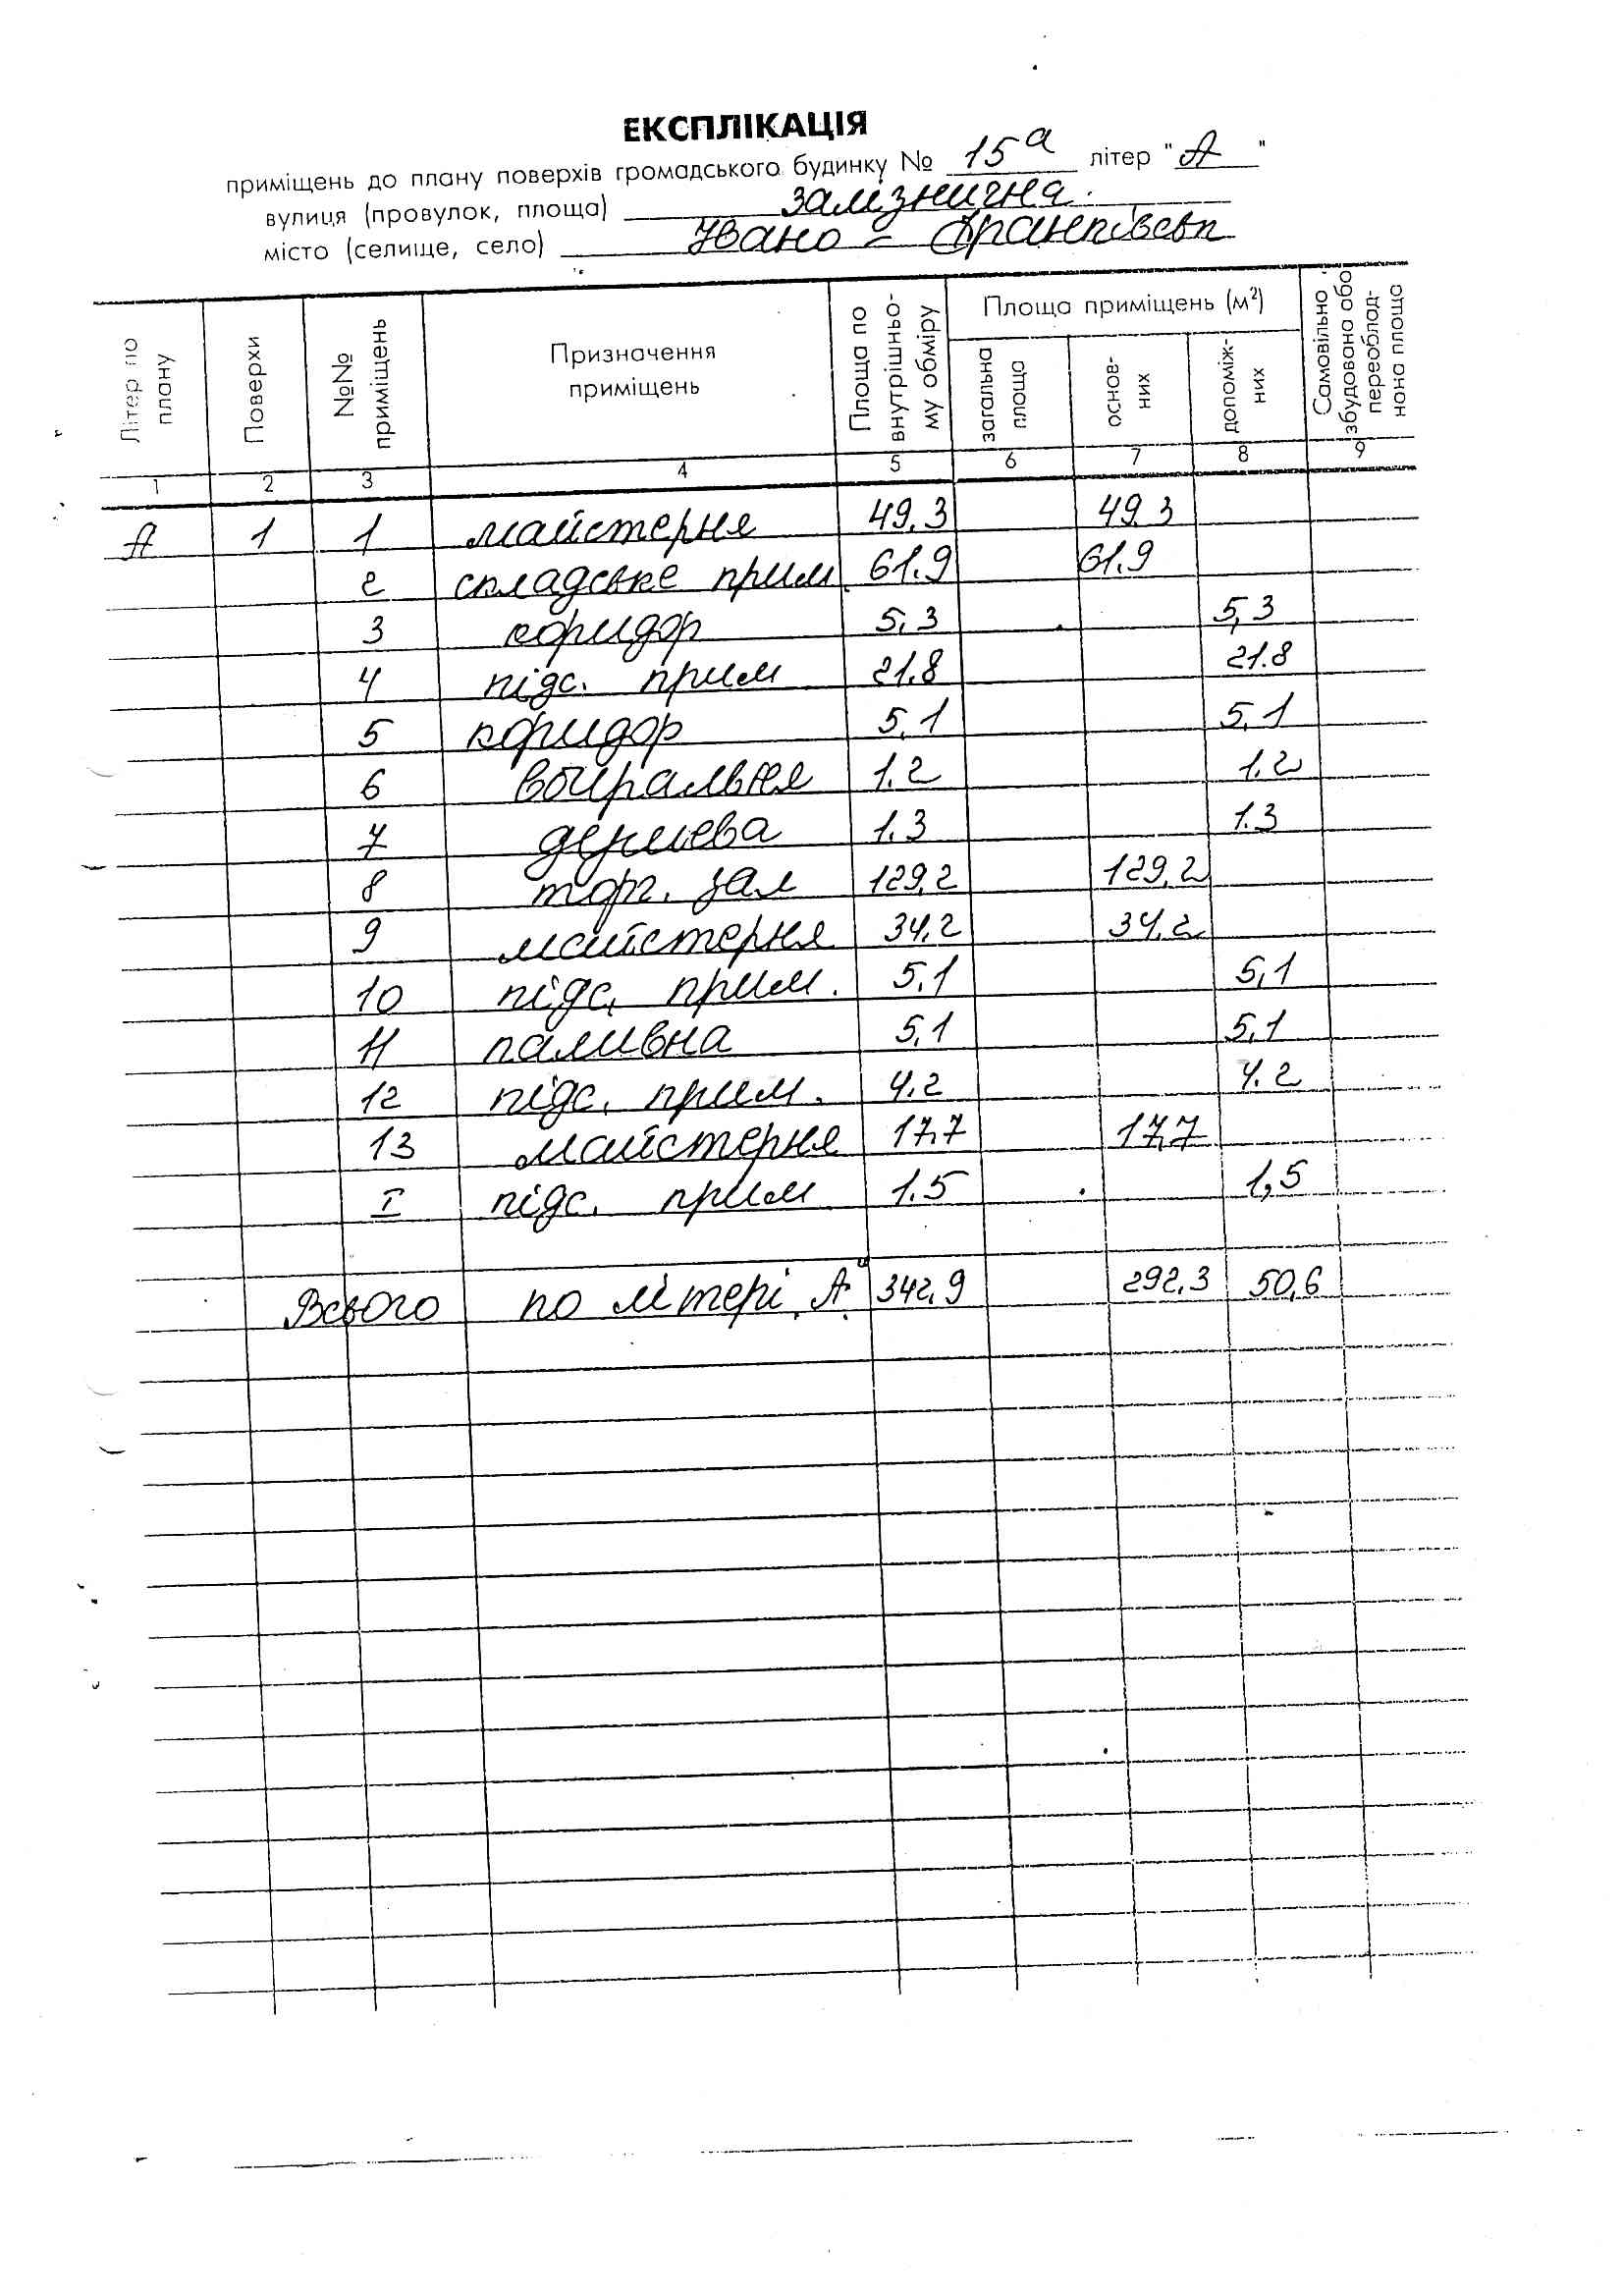 ЕКСПЛІКАЦІЯ
приміщень до плану поверхів громадського будинку № 15а літер "А"
вулиця (провулок, площа) Залізнична.
місто (селище, село) Івано - Франківськ
Літер по плану | Поверхи | №№ приміщень | Призначення приміщень | Площа по внутрішньому обміру | Площа приміщень (м²) | загальна площа | основних | допоміжних | Самовільно збудована або переобладнона площа
1 2 3 4 5 6 7 8 9
А 1 1 майстерня 49,3 49.3
2 складське прим. 61.9 61.9
3 коридор 5,3 5,3
4 підс. прим 21.8 21.8
5 коридор 5,1 5,1
6 вбиральня 1.2 1.2
7 душева 1.3 1.3
8 торг. зал 129,2 129,2
9 майстерня 34,2 34,2
10 підс, прим. 5,1 5,1
11 паливна 5,1 5,1
12 підс. прим. 4.2 4.2
13 майстерня 17,7 17,7
I підс. прим 1.5 1,5
Всього по літері „А" 342,9 292,3 50,6